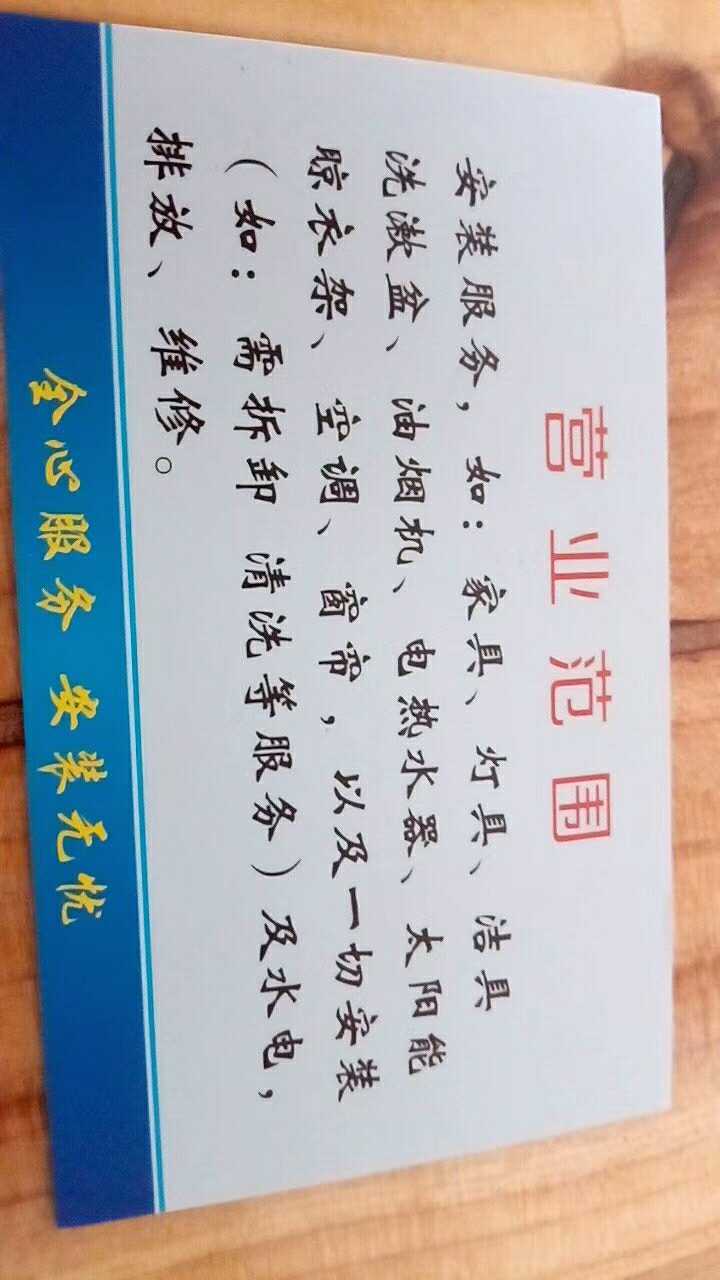 营业范围
安装服务，如：家具、灯具、洁具
洗漱盆、油烟机、电热水器、太阳能
晾衣架、空调、窗帘，以及一切安装
（如：需拆卸 清洗等服务）及水电，
排放、维修。
全心服务 安装无忧